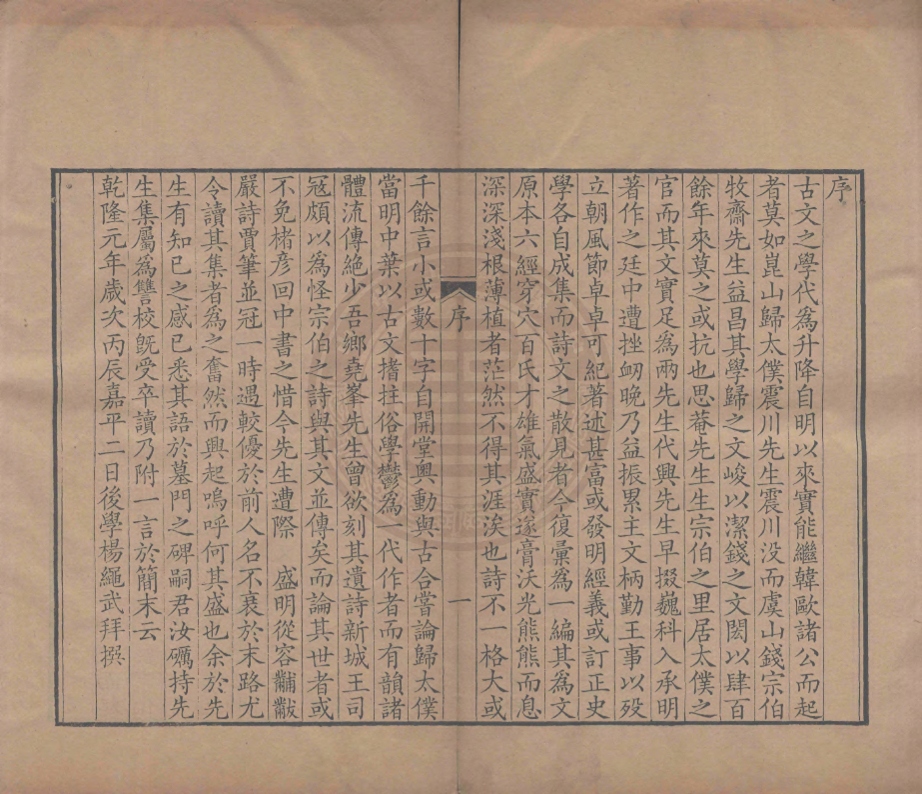 序
古文之學代爲升降自明以來實能繼韓歐諸公而起
者莫如崑山歸太僕震川先生震川没而虞山錢宗伯
牧齋先生益昌其學歸之文峻以潔錢之文閎以肆百
餘年來莫之或抗也思菴先生生宗伯之里居太僕之
官而其文實足爲兩先生代興先生早掇巍科入承明
著作之廷中遭挫衂晚乃益振累主文柄勤王事以殁
立朝風節卓卓可紀著述甚富或發明經義或訂正史
學各自成集而詩文之散見者今復彙爲一編其爲文
原本六經穿穴百氏才雄氣盛實遂膏沃光熊熊而息
深深淺根薄植者茫然不得其涯涘也詩不一格大或
序
一
千餘言小或數十字自開堂奧動與古合嘗論歸太僕
當明中葉以古文撐拄俗學鬱爲一代作者而有韻諸
體流傳絶少吾鄉堯峯先生曾欲刻其遺詩新城王司
寇頗以爲怪宗伯之詩與其文並傳矣而論其世者或
不免褚彦回中書之惜今先生遭際 盛明從容黼黻
嚴詩賈筆並冠一時過較優於前人名不衰於末路尤
令讀其集者爲之奮然而興起嗚呼何其盛也余於先
生有知已之感已悉其語於墓門之碑嗣君汝礪持先
生集屬爲讐校旣受卒讀乃附一言於簡末云
乾隆元年歲次丙辰嘉平二日後學楊繩武拜撰